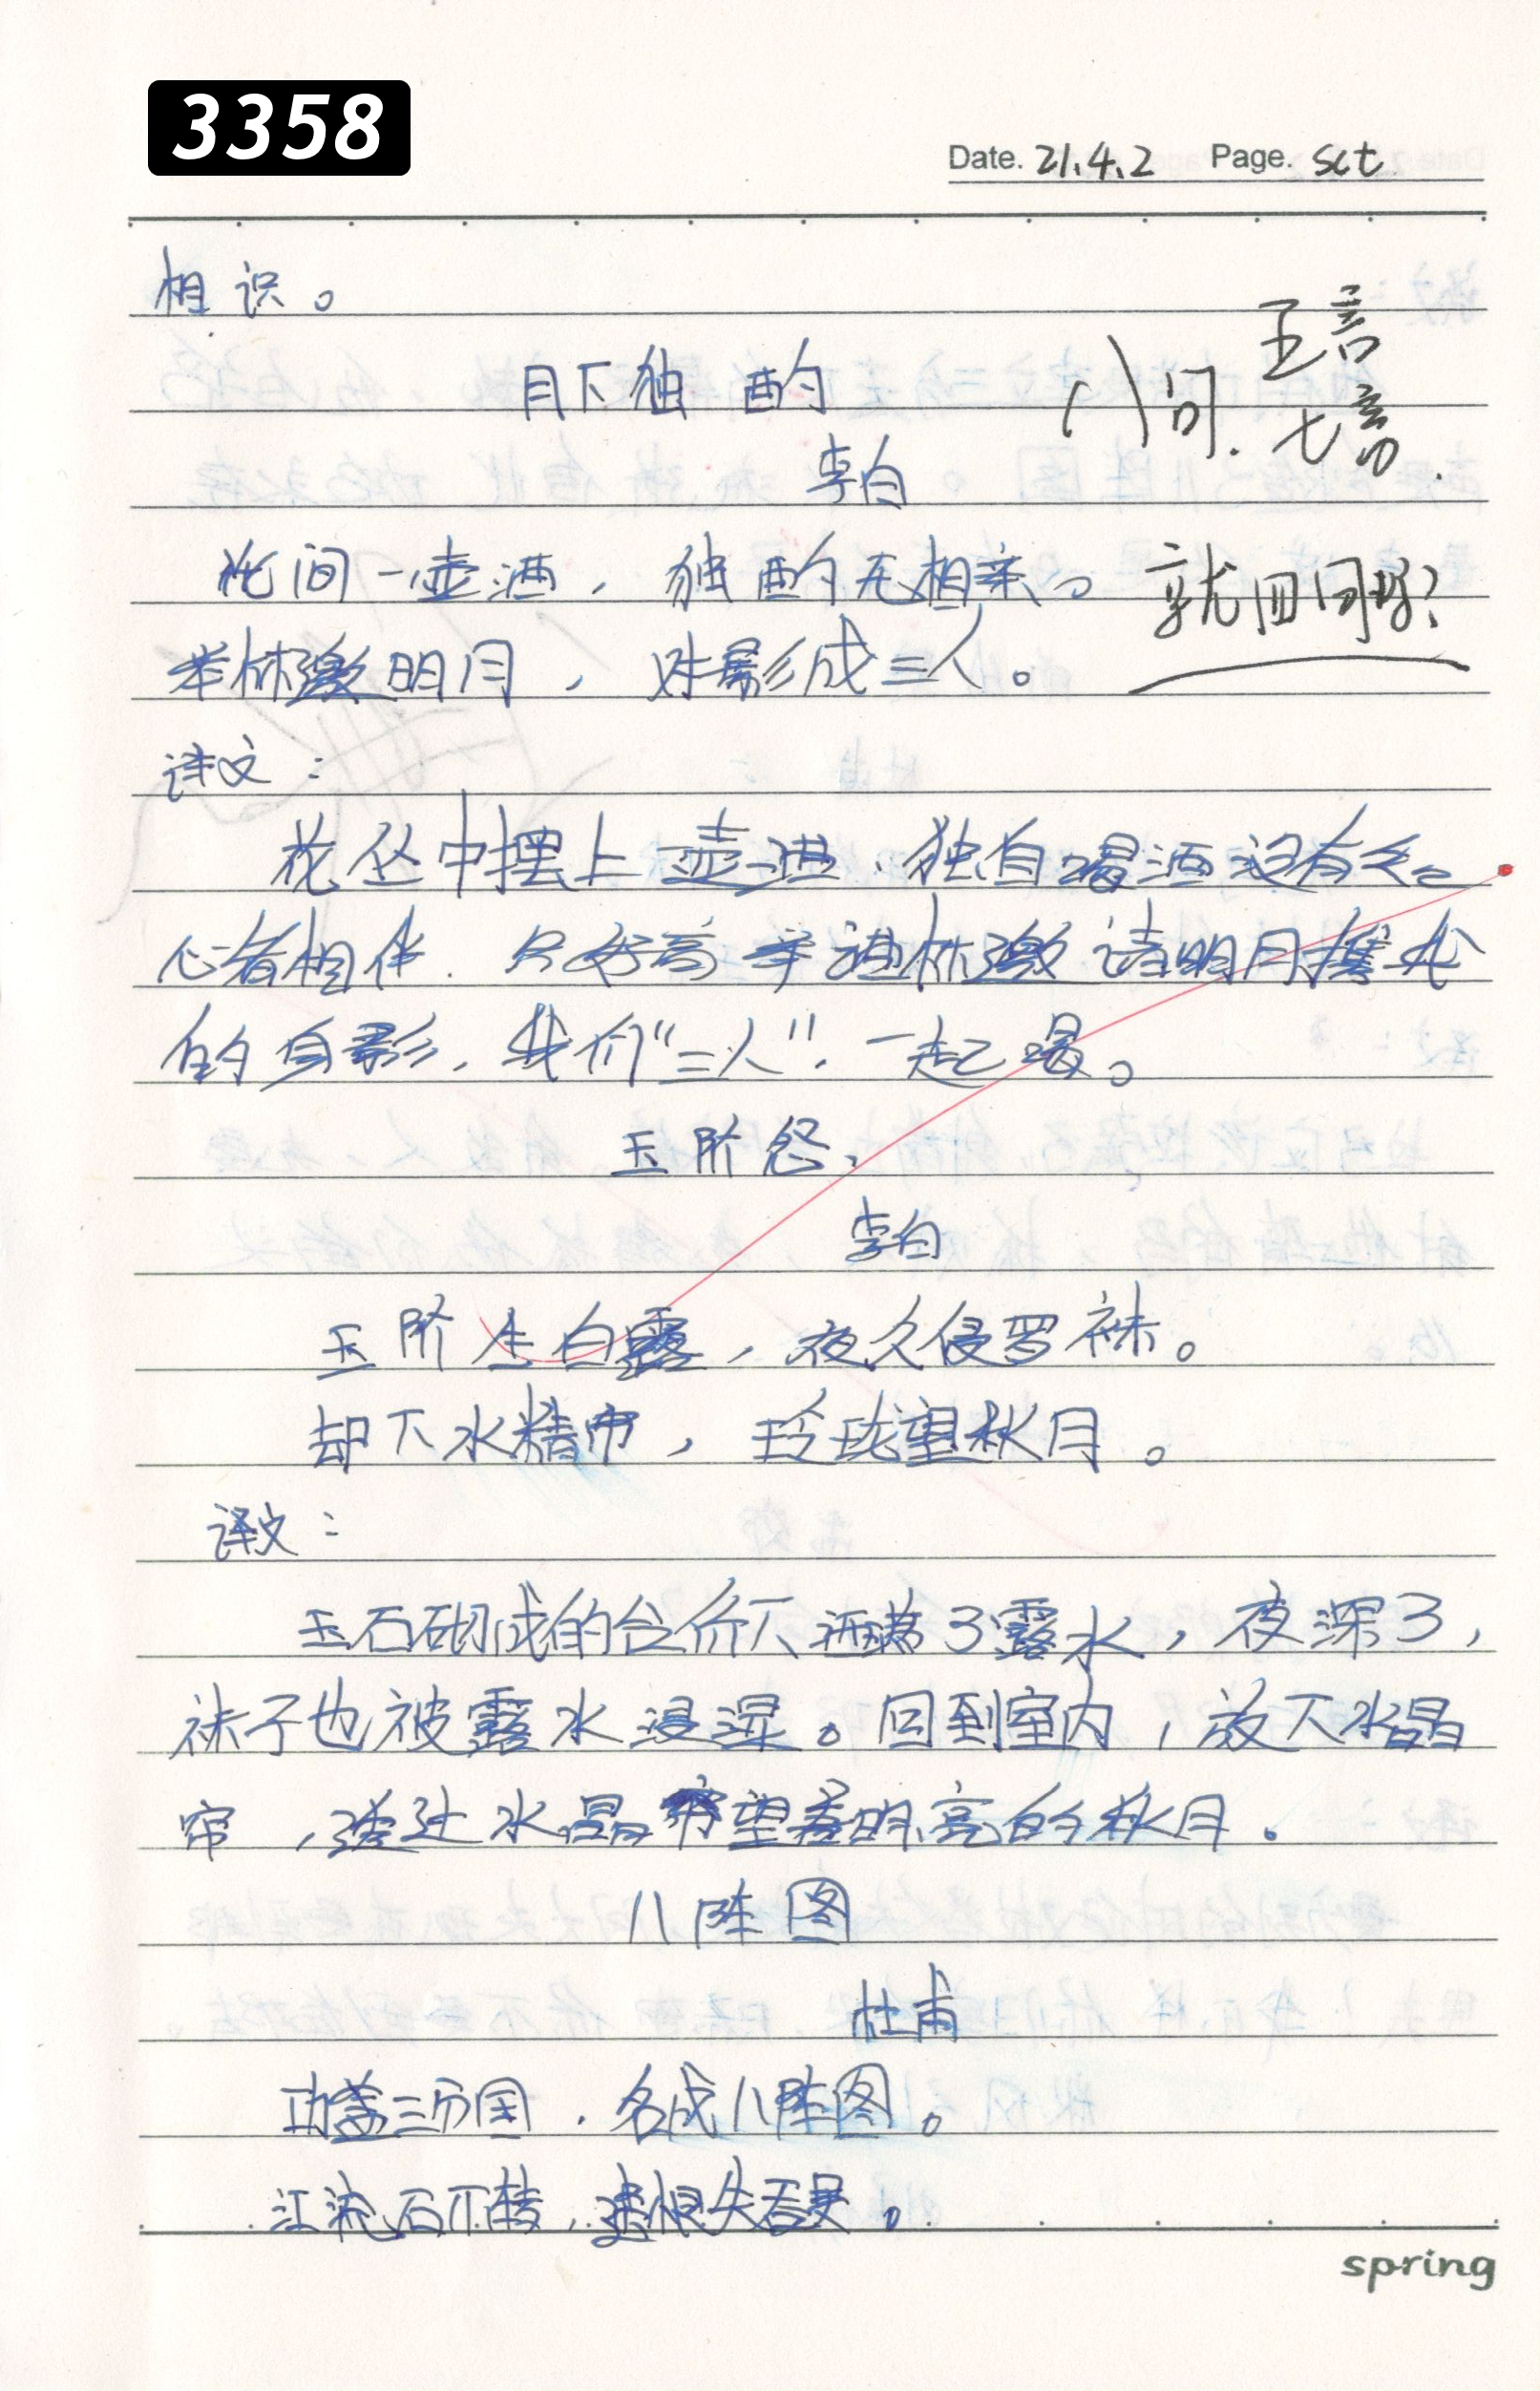 3358
Date. 21.4.2 Page. sct
相识。
月下独酌
八句. 五言
七言.
李白
花间一壶酒，独酌无相亲。
就四句吗?
举杯邀明月，对影成三人。
译文：
花丛中摆上一壶酒，独自喝酒没有知
心者相伴．只好高举酒杯邀请明月携
的身影．我们“三人”．一起喝。
玉阶怨，
李白
玉阶生白露，夜久侵罗袜。
却下水精帘，玲珑望秋月。
译文：
玉石砌成的台阶下洒满了露水，夜深了，
袜子也被露水浸湿。回到室内，放下水晶
帘，透过水晶帘望着明亮的秋月．
八阵图
杜甫
功盖三分国．名成八阵图。
江流石不转，遗恨失吞吴。
spring